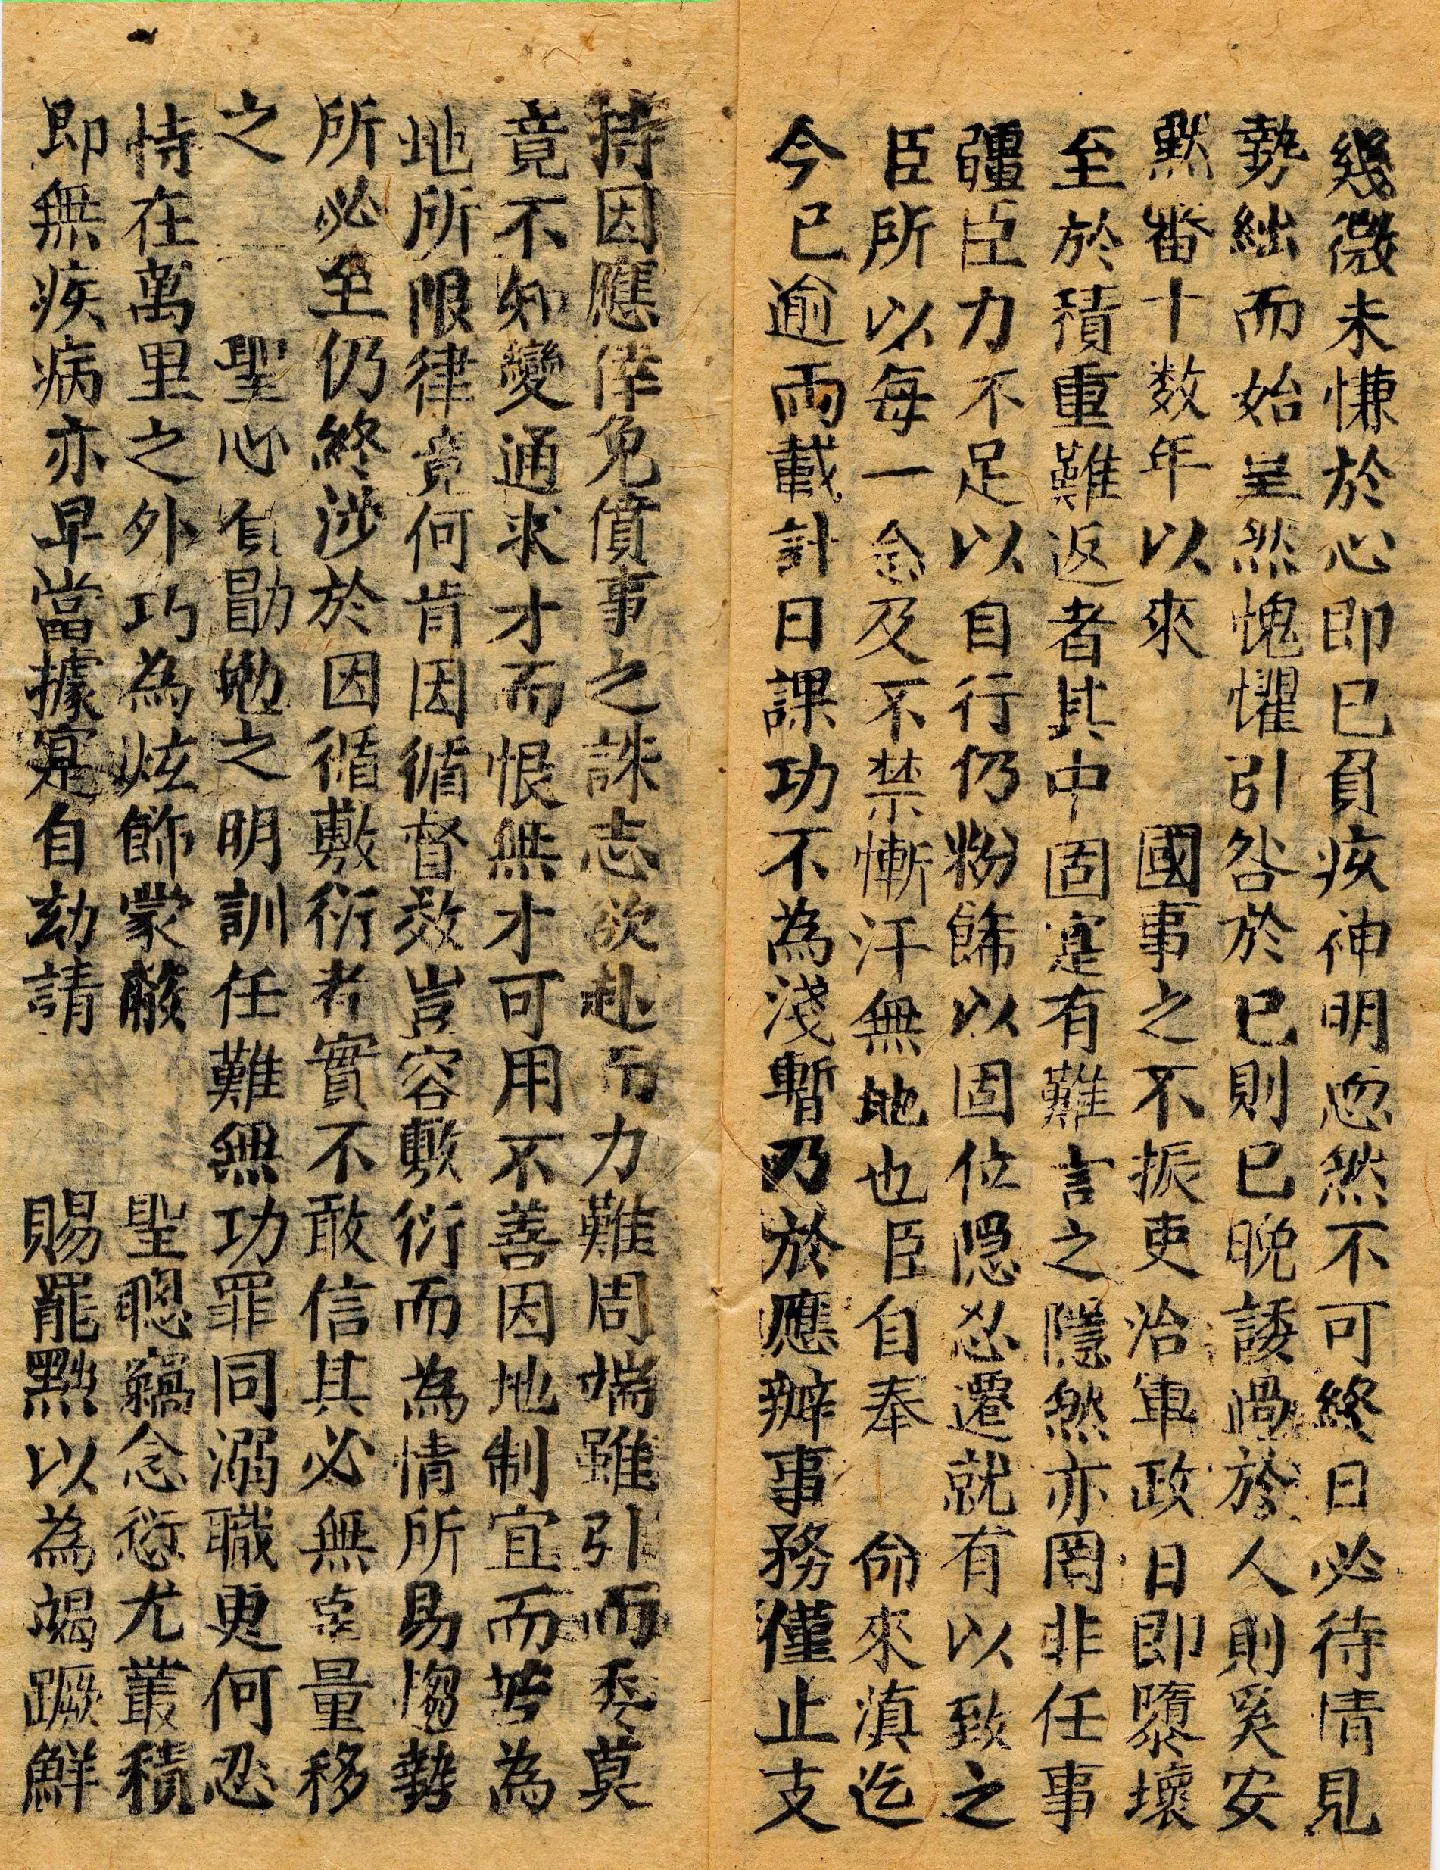 幾微未慊於心即已負疚神明恧然不可終日必待情見
勢絀而始呈然愧懼引咎於已則已晚諉過於人則奚安
黙番十数年以來 國事之不振吏治軍政日即隳壞
至於積重難返者其中固寔有難言之隱然亦罔非任事
疆臣力不足以自行仍粉餙以固位隠忍遷就有以致之
臣所以每一念及不禁慚汗無地也臣自奉 命來滇迄
今已逾兩載計日課功不為淺暫乃於應辦事務僅止支
持因應倖免僨事之誅志欲赴而力難周端雖引而委莫
竟不知變通求才而恨無才可用不善因地制宜而苦為
地所限律竟何肯因循督效豈容敷衍而為情所易惱勢
所必至仍終涉於因循敷衍者實不敢信其必無幸量移
之 聖心負勖勉之明訓任難無功罪同溺職更何忍
恃在萬里之外巧為炫飾蒙蔽 聖聰竊念愆尤叢積
即無疾病亦早當據寔自劾請 賜罷黜以為竭蹶鮮